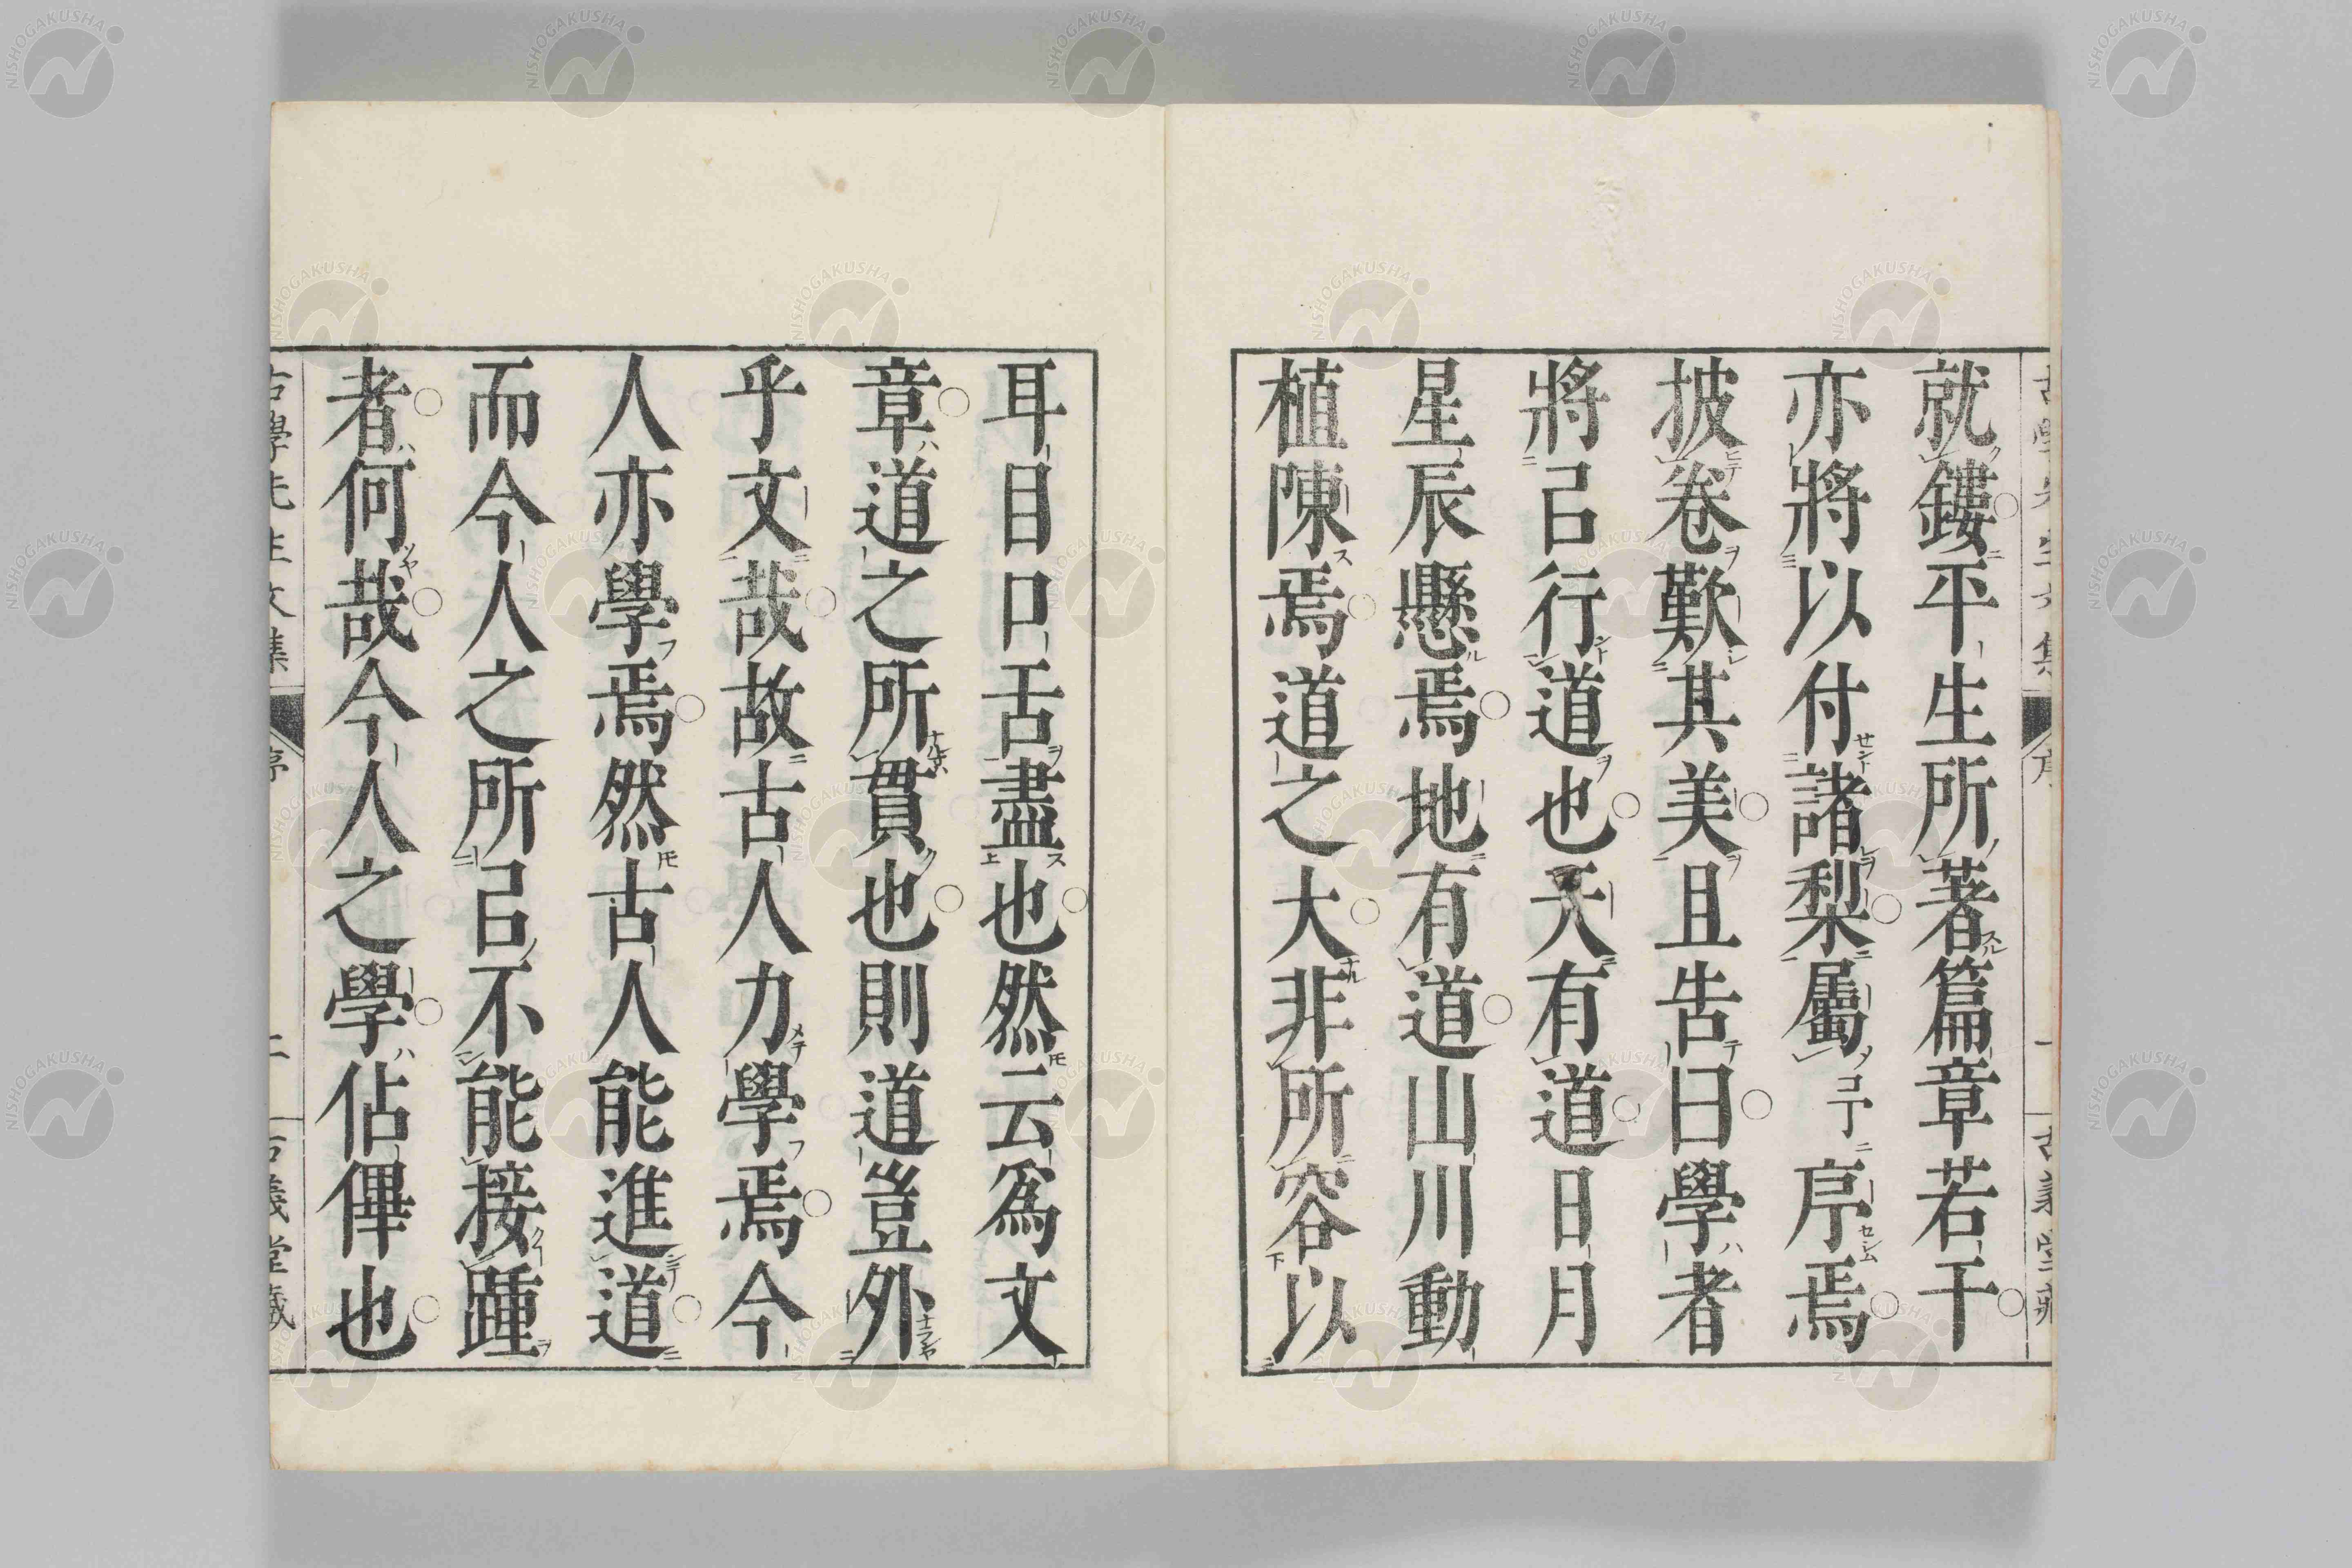 就鏤平生所著篇章若干
亦將以付諸梨屬コ丁序焉
披卷歎其美且告曰學者
將己行道也天有道日月
星辰懸焉地有道山川動
植陳焉道之大非所容以
耳目口舌盡也然云爲文
章道之所貫也則道豈外
乎文哉故古人力學焉今
人亦學焉然古人能進道
而今人之所己不能接踵
者何哉今人之學佔傳也
古學先生文集
序
二
古義堂藏
NISHOGAKUSHA